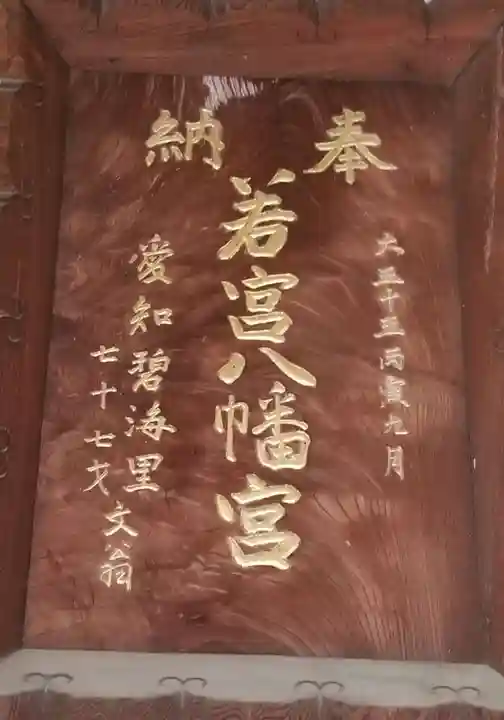 奉納
大正十五丙寅九月
若宮八幡宮
愛知碧海里
七十七才文翁